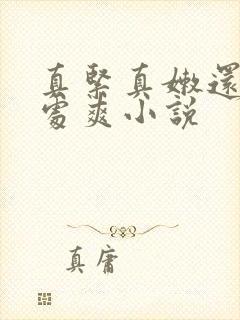 真緊真嫩還
處爽小説
真庸